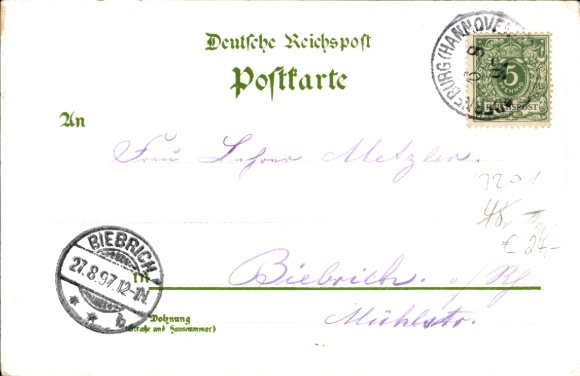 Deutsche Reichspost
Postkarte
BURG (HANNOVER)
5
PFENNIG
REICHSPOST
An
Frau Lehrer Metzler.
1201
48,
€ 24,-
BIEBRICH
27.8.97.12-1N.
* * b
in Biebrich. a/Rh
Mühlstr.
Wohnung
(Straße und Hausnummer)